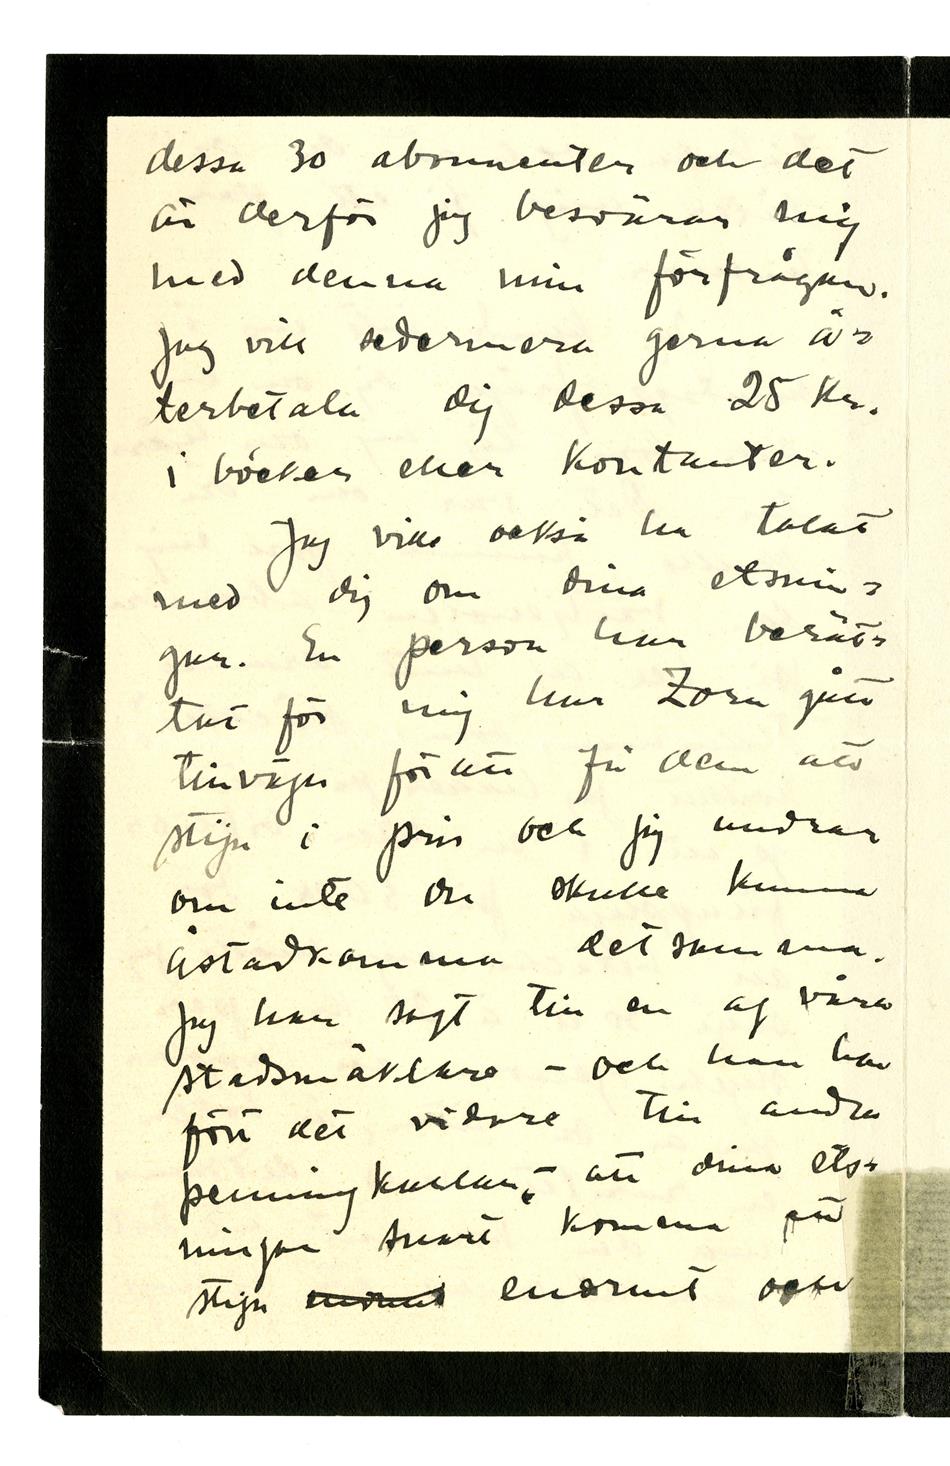 dessa 30 abonnenter och det
är derför jag besvärar mig
med denna min förfrågan.
Jag vill sedermera gerna å-
terbetala dig dessa 25 Kr.
i böcker eller kontanter.
Jag ville också ha talat
med dig om dina etsnin-
gar. En person har berät-
tat för mig hur Zorn gått
tillväga för att få dem att
stiga i pris och jag undrar
om inte du skulle kunna
åstadkomma detsamma.
Jag har sagt till en af våra
stadsmäklare – och han har
fört det vidare till andra
penningkarlar, att dina ets-
ningar snart komma att
stiga enormt och